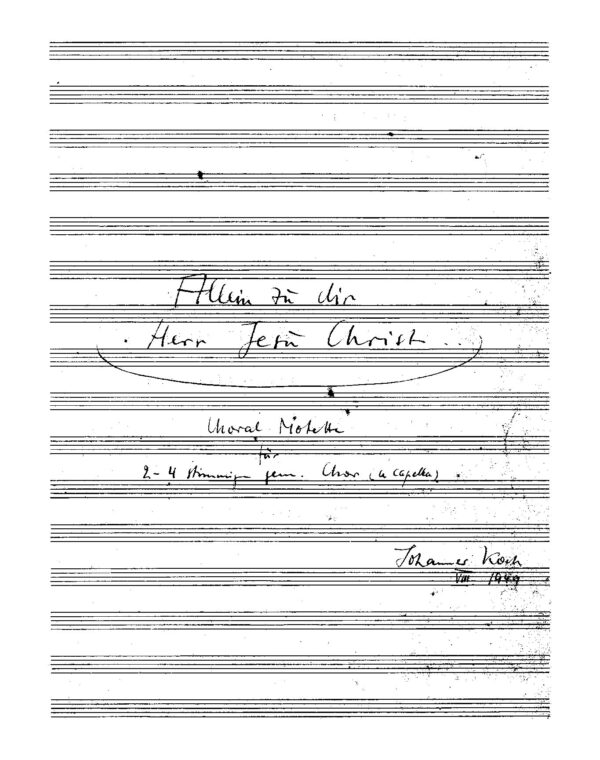 Allein zu dir
Herr Jesu Christ ..
Choral Motette
für
2-4 stimmigen gem. Chor (a capella).
Johannes Koch
VIII 1949